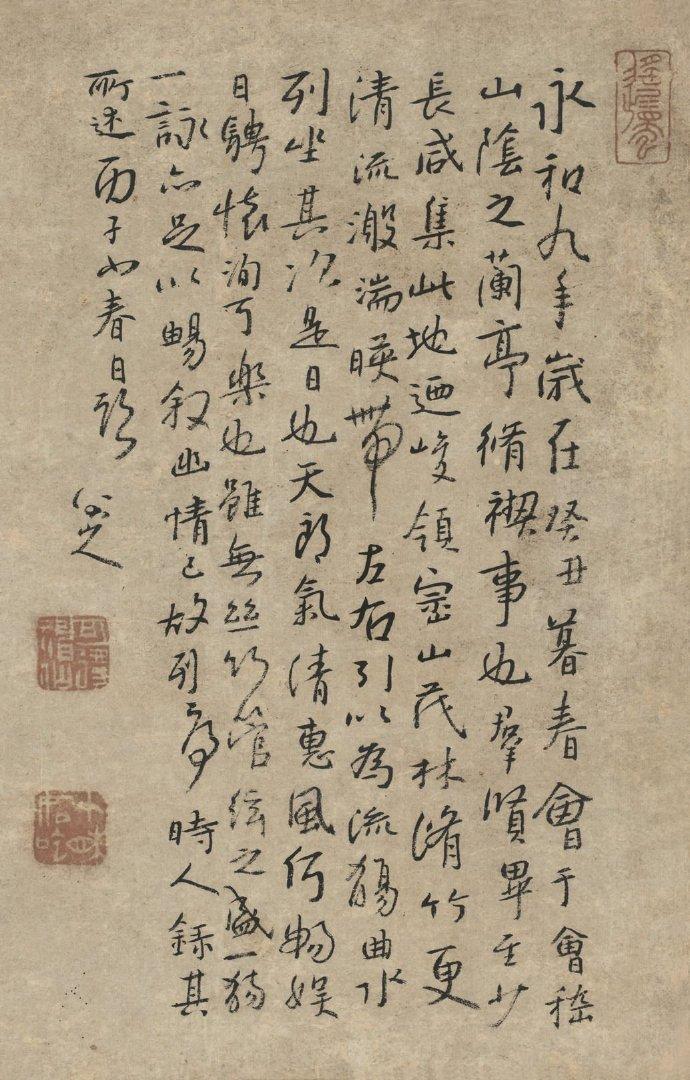 永和九年歲在癸丑暮春會于會稽
山陰之蘭亭脩禊事也羣賢畢至少
長咸集此地迺峻領崇山茂林脩竹更
清流激湍暎帶左右引以為流觴曲水
列坐其次是日也天朗氣清惠風何暢娛
日騁懷洵可樂也雖無絲竹管絃之盛一觴
一詠亦足以暢敘幽情已故列序時人錄其
所述丙子小春日題
八大山人